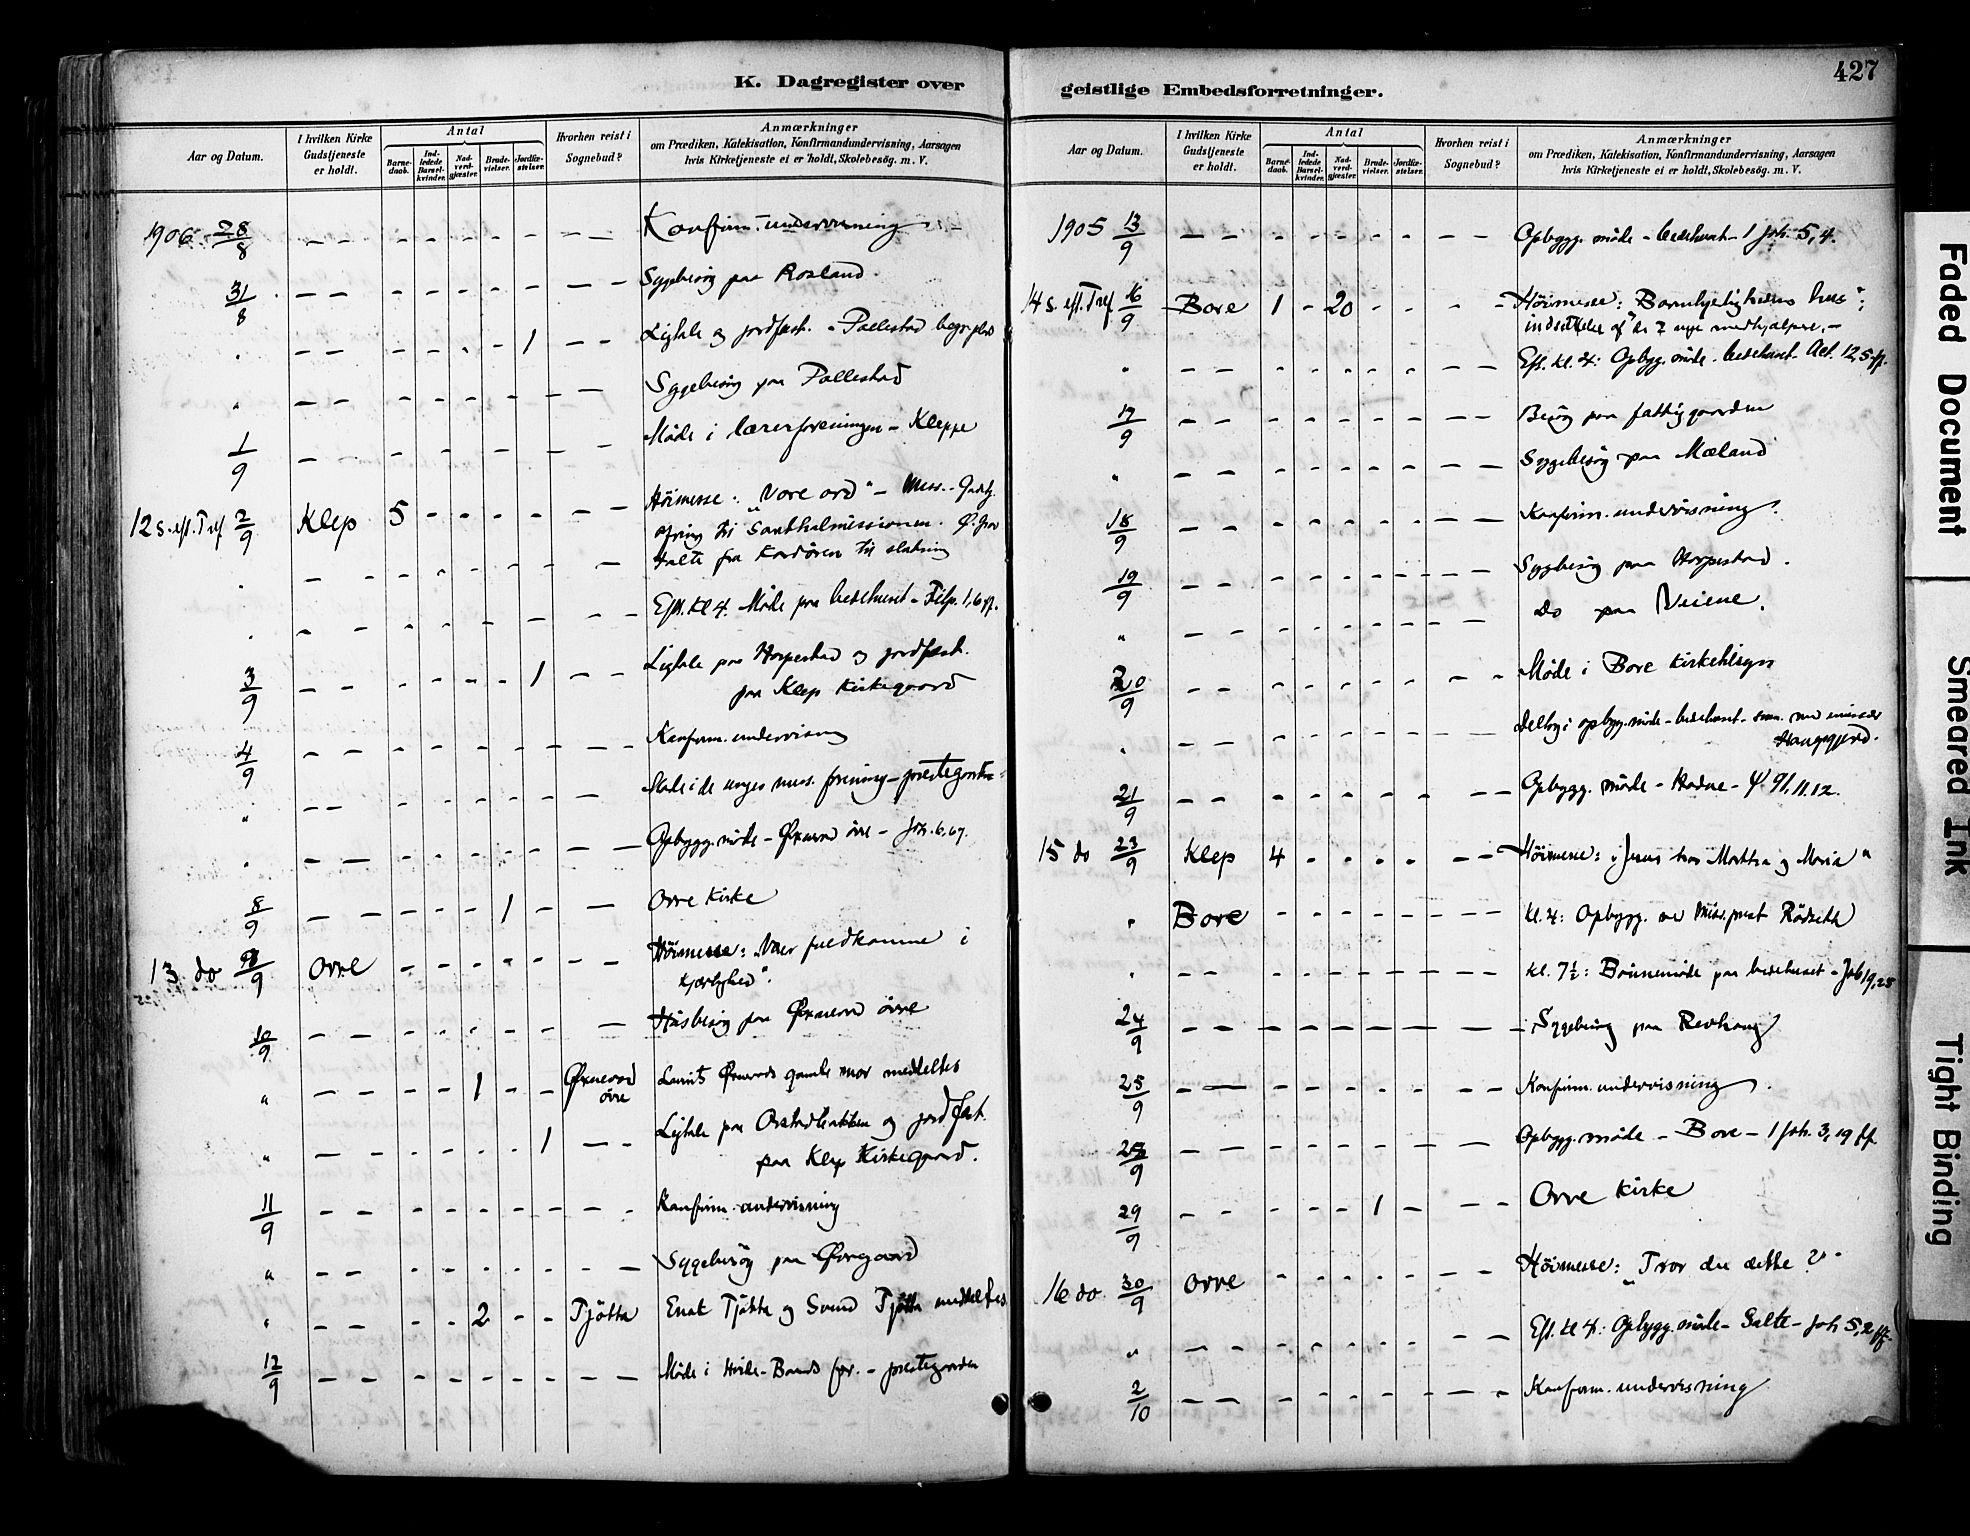 427
K. Dagregister over
geistlige Embedsforretninger.
Aar og Datum.
I hvilken Kirke Gudstjeneste er holdt.
Antal
Barnedaab.
Indledede Barselkvinder.
Nadverdgjæster.
Brudevielser.
Jordfæstelser.
Hvorhen reist i Sognebud?
Anmærkninger
om Prædiken, Katekisation, Konfirmandundervisning, Aarsagen
hvis Kirketjeneste ei er holdt, Skolebesög. m. V.
1906 28/8 Konfirm.undervisning
31/8 Sygebesög paa Rosland.
" 1 Ligtale og jordfæst. - Pollestad
" Sygebesög paa Pollestad
1/9 Möde i lærerforeningen - Kleppe
12 s. eft. Tref 2/9 Klep 5 Höimesse: "Vore ord" - Miss.
ofring til Santhalmissionen.
" Eft. kl 4. Möde paa bedehuset - Filip. 1,6 ff.
3/9 1 Ligtale paa Horpestad og jordfæst.
paa Klep Kirkegaard
4/9 Konfirm.undervisning
" Möde i de unges miss. forening - prestegaarden
" Opbygg. möde - Öxnevad övre - Joh. 6,67.
8/9 1 Orre Kirke
13 do 9/9 Orre Höimesse: "Vær fuldkomne i
kjærlighed".
10/9 Husbesög paa Öxnevad övre
" 1 Öxnevad övre gamle mor meddeltes
" 1 Ligtale paa Orstadbakken og jordfæst.
paa Klep Kirkegaard.
11/9 Konfirm.undervisning
" Sygebesög paa Övregaard
" 2 Tjötta Enok Tjötta og Svend Tjötta meddeltes
12/9 Möde i Hvide-Baands for. - prestegaarden
Aar og Datum.
I hvilken Kirke Gudstjeneste er holdt.
Antal
Barnedaab.
Indledede Barselkvinder.
Nadverdgjæster.
Brudevielser.
Jordfæstelser.
Hvorhen reist i Sognebud?
Anmærkninger
om Prædiken, Katekisation, Konfirmandundervisning, Aarsagen
hvis Kirketjeneste ei er holdt, Skolebesög. m. V.
1905 13/9 Opbygg. möde - bedehuset - 1 Joh 5,4.
14 s. eft. Tref 16/9 Bore 1 20 Höimesse: "Barmhjertighedens hus";
indsættelse af de 7 nye medhjælpere. -
" Eft. kl. 4: Opbygg. möde - bedehuset - Act. 12,5 ff.
17/9 Besög paa fattiggaarden
" Sygebesög paa Mæland
18/9 Konfirm.undervisning.
19/9 Sygebesög paa Horpestad.
" Do paa Veiene.
20/9 Möde i Bore Kirketilsyn
" Deltog i opbygg. möde - bedehuset - sam. med emissær
Haugsgjerd.
21/9 Opbygg. möde - Hodne - ψ 91,11.12.
15 do 23/9 Klep 4 Höimesse: "Jesus hos Martha og Maria"
" Bore kl. 4: Opbygg. ved Miss.prest Rödseth
" kl. 7½: Bönnemöde paa bedehuset - Job 19,25
24/9 Sygebesög paa Revhaug
25/9 Konfirm.undervisning.
25/9 Opbygg. möde - Bore - 1 Joh. 3,19 ff
29/9 1 Orre Kirke
16 do 30/9 Orre Höimesse: "Tror du dette?"
" Eft. kl 4: Opbygg. möde - Salte - Joh 5,2 ff.
2/10 Konfirm.undervisning
Faded Document
Smeared Ink
Tight Binding